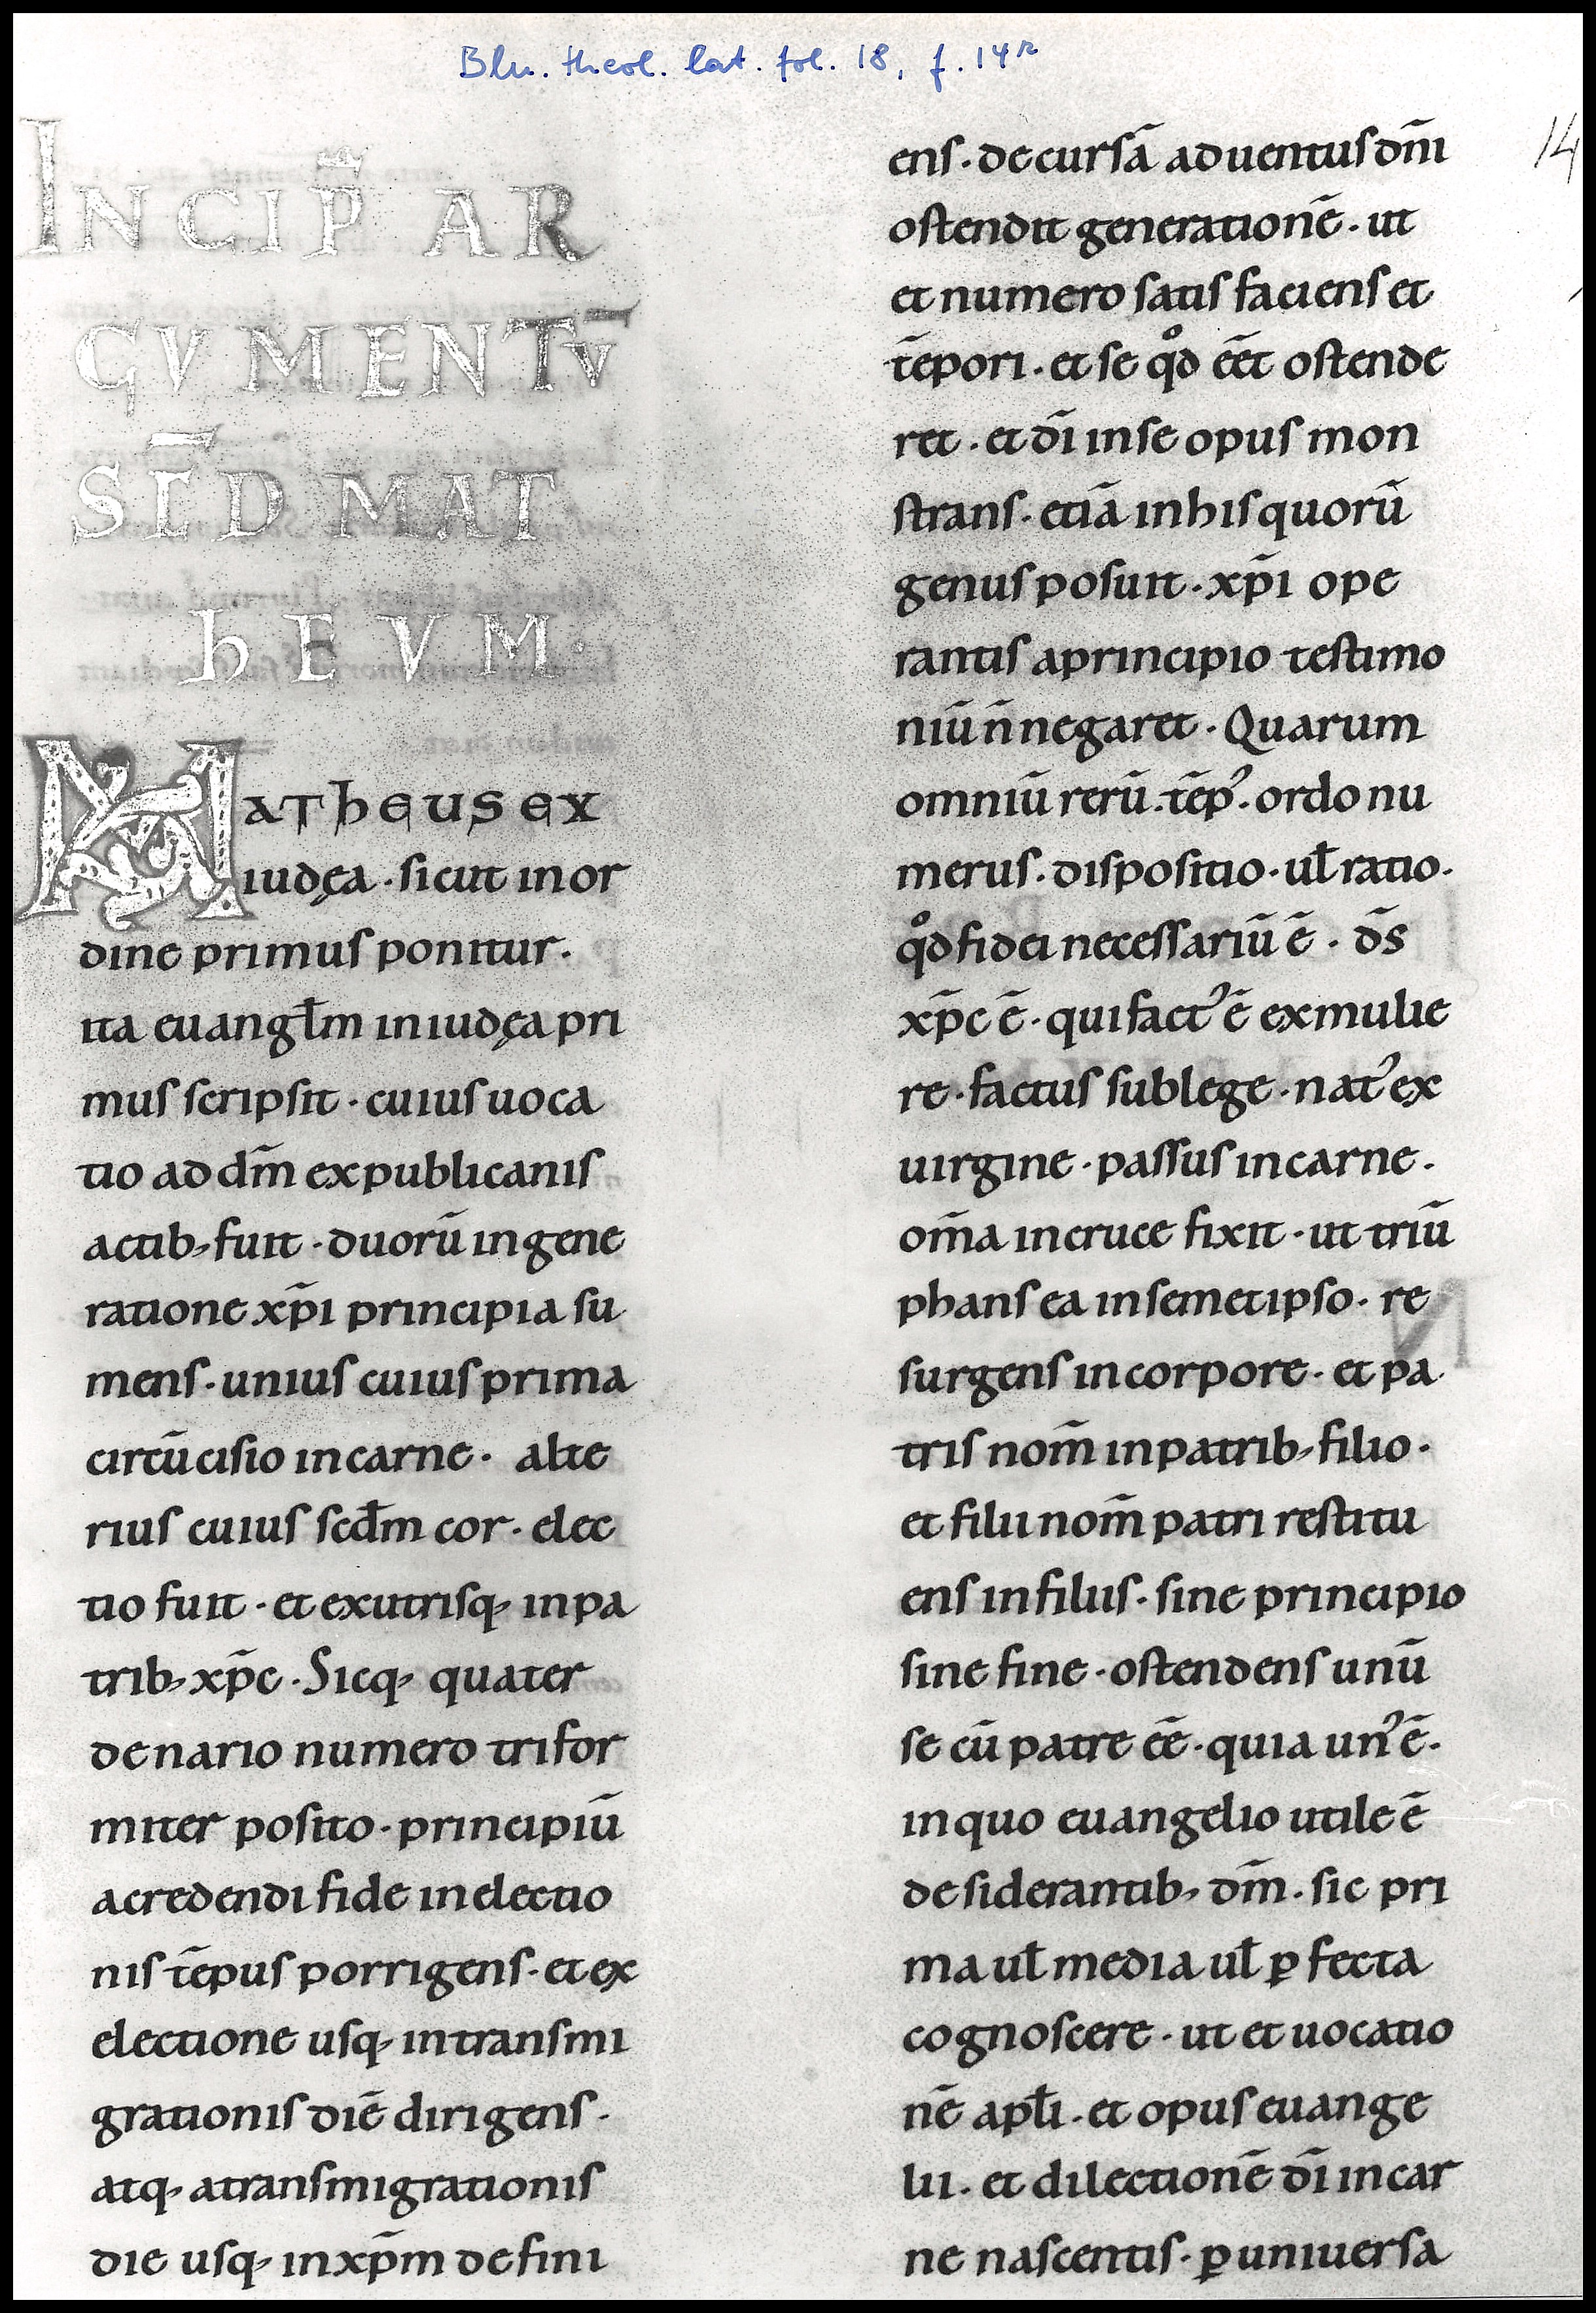 Bln. theol. lat. fol. 18, f. 14r
14
INCIP̄ AR
GVMENTV̄
SC̄D MAT
hEVM·
MATheus ex
iudęa · sicut in or
dine primus ponitur ·
ita euangl̄m in iudęa pri
mus scripsit · cuius uoca
tio ad dm̄ ex publicanis
actib; fuit · duorū in gene
ratione xp̄i principia su
mens · unius cuius prima
circū cisio in carne · alte
rius cuius scd̄m cor · elec
tio fuit · et ex utrisq; in pa
trib; xp̄c · Sicq; quater
denario numero trifor
miter posito · principiū
a credendi fide in electio
nis tēpus porrigens · et ex
electione usq; in transmi
grationis diē dirigens ·
atq; a transmigrationis
die usq; in xp̄m defini
ens · decursā aduentus dn̄i
ostendit generationē · ut
et numero satis faciens et
tēpori · et se qͦd eēt ostende
ret · et dī in se opus mon
strans · etiā in his quorū
genus posuit · xp̄i ope
rantis a principio testimo
niū n̄ negaret · Quarum
omniū rerū · tēpꝰ · ordo nu
merus · dispositio · ul̄ ratio ·
qͦd fidei necessariū ē · ds̄
xp̄c ē · qui factꝰ ē ex mulie
re · factus sub lege · natꝰ ex
uirgine · passus in carne ·
om̄a in cruce fixit · ut triū
phans ea in semetipso · re
surgens in corpore · et pa
tris nom̄ in patrib; filio ·
et filii nom̄ patri restitu
ens in filiis · sine principio
sine fine · ostendens unū
se cū patre eē · quia unꝰ ē ·
in quo euangelio utile ē
desiderantib; dm̄ · sic pri
ma ul̄ media ul̄ ꝑfecta
cognoscere · ut et uocatio
nē apl̄i · et opus euange
lii · et dilectionē dī in car
ne nascentis · ꝑ uniuersa